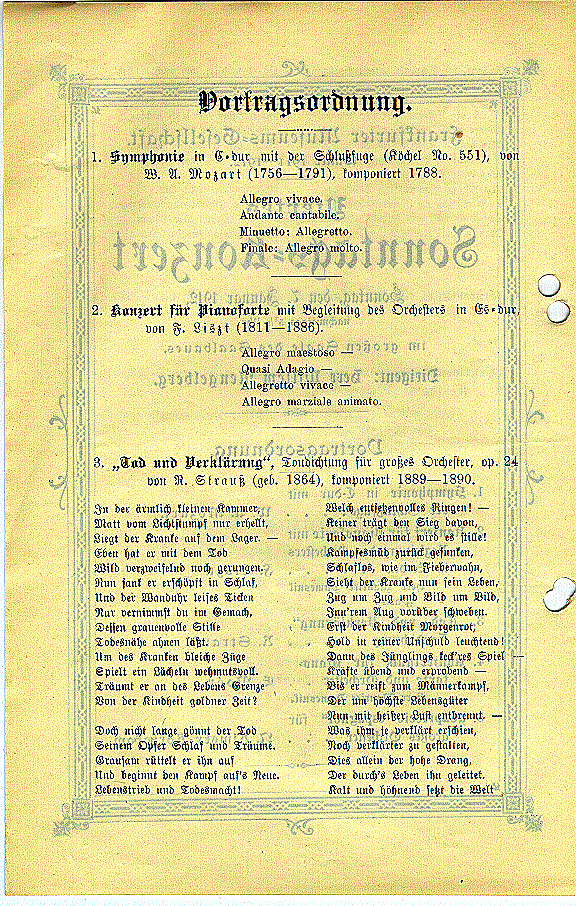 Vortragsordnung.
1. Symphonie in C-dur mit der Schlußfuge (Köchel No. 551), von
W. A. Mozart (1756—1791), komponiert 1788.
Allegro vivace.
Andante cantabile.
Minuetto: Allegretto.
Finale: Allegro molto.
2. Konzert für Pianoforte mit Begleitung des Orchesters in Es-dur,
von F. Liszt (1811—1886).
Allegro maestoso —
Quasi Adagio —
Allegretto vivace —
Allegro marziale animato.
3. „Tod und Verklärung“, Tondichtung für großes Orchester, op. 24
von R. Strauß (geb. 1864), komponiert 1889—1890.
In der ärmlich kleinen Kammer,
Matt vom Lichtstumpf nur erhellt,
Liegt der Kranke auf dem Lager. —
Eben hat er mit dem Tod
Wild verzweifelnd noch gerungen.
Nun sank er erschöpft in Schlaf,
Und der Wanduhr leises Ticken
Nur vernimmst du im Gemach,
Dessen grauenvolle Stille
Todesnähe ahnen läßt.
Um des Kranken bleiche Züge
Spielt ein Lächeln wehmutsvoll.
Träumt er an des Lebens Grenze
Von der Kindheit goldner Zeit?
Doch nicht lange gönnt der Tod
Seinem Opfer Schlaf und Träume.
Grausam rüttelt er ihn auf
Und beginnt den Kampf auf's Neue.
Lebenstrieb und Todesmacht!
Welch entsetzenvolles Ringen! —
Keiner trägt den Sieg davon,
Und noch einmal wird es stille!
Kampfesmüd zurück gesunken,
Schlaflos, wie im Fieberwahn,
Sieht der Kranke nun sein Leben,
Zug um Zug und Bild um Bild,
Inn'rem Aug vorüber schweben.
Erst der Kindheit Morgenrot,
Hold in reiner Unschuld leuchtend!
Dann des Jünglings keck'res Spiel —
Kräfte übend und erprobend —
Bis er reift zum Männerkampf,
Der um höchste Lebensgüter
Nun mit heißer Lust entbrennt. —
Was ihm je verklärt erschien,
Noch verklärter zu gestalten,
Dies allein der hohe Drang,
Der durch's Leben ihn geleitet.
Kalt und höhnend setzt die Welt